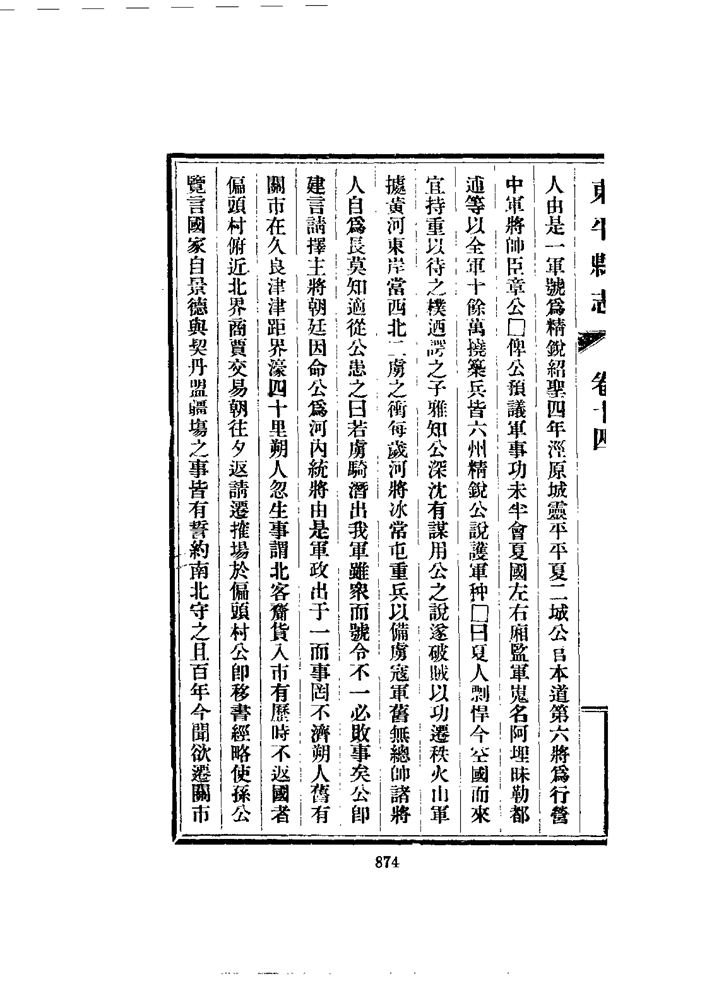 東平縣志 卷十四
人由是一軍號爲精銳紹聖四年涇原城靈平平夏二城公自本道第六將爲行營
中軍將帥臣章公□俾公預議軍事功未半會夏國左右廂監軍嵬名阿埋昧勒都
逋等以全軍十餘萬撓築兵皆六州精銳公說護軍种□曰夏人剽悍今空國而來
宜持重以待之樸迺諤之子雅知公深沈有謀用公之說遂破賊以功遷秩火山軍
據黃河東岸當西北二虜之衝每歲河將冰常屯重兵以備虜寇軍舊無總帥諸將
人自爲長莫知適從公患之曰若虜騎潛出我軍雖衆而號令不一必敗事矣公卽
建言請擇主將朝廷因命公爲河內統將由是軍政出于一而事罔不濟朔人舊有
關市在久良津津距界濠四十里朔人忽生事謂北客齎貨入市有歷時不返國者
偏頭村俯近北界商賈交易朝往夕返請遷搉場於偏頭村公卽移書經略使孫公
覽言國家自景德與契丹盟疆埸之事皆有誓約南北守之且百年今聞欲遷關市
874